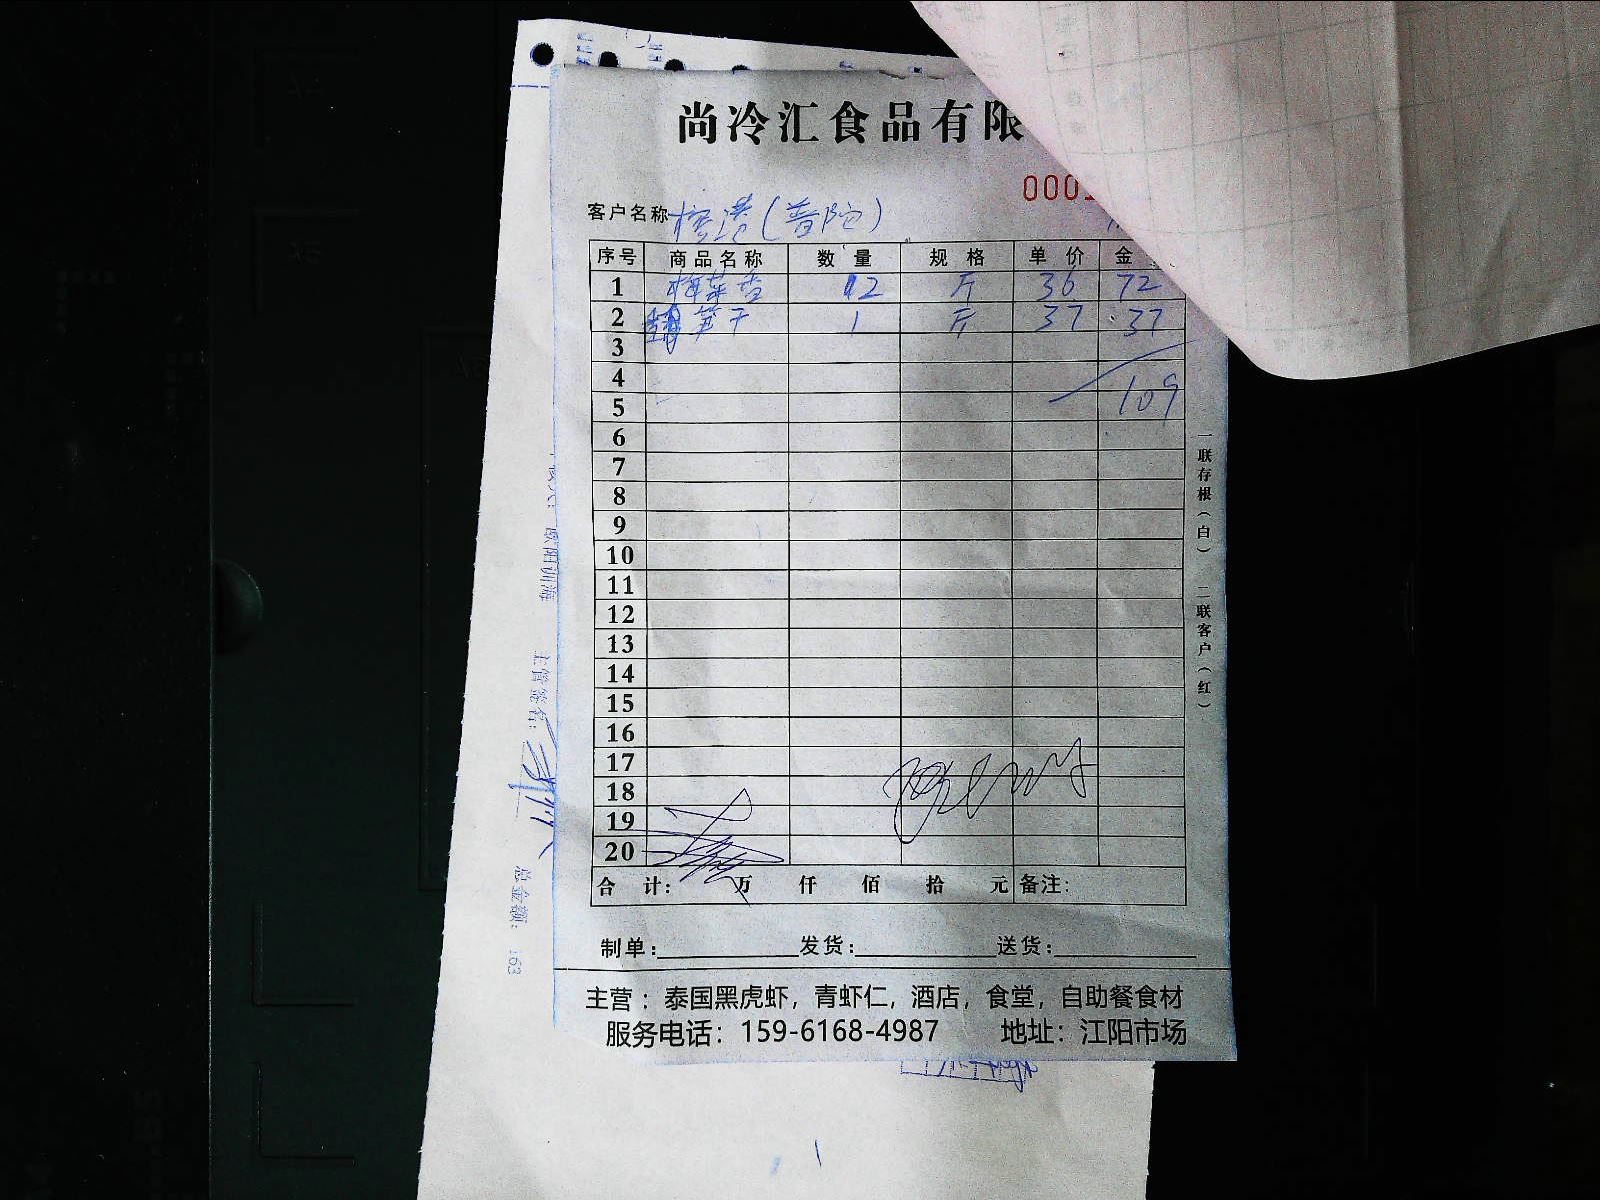 尚冷汇食品有限
000
客户名称 港(普陀)
序号 商品名称 数量 规格 单价 金
1 梅菜 2 斤 36 72
2 笋干 1 斤 37 37
3
4
5 109
6
7
8
9
10
11
12
13
14
15
16
17
18
19
20
合 计: 万 仟 佰 拾 元 备注:
制单: 发货: 送货:
主营：泰国黑虎虾，青虾仁，酒店，食堂，自助餐食材
服务电话：159-6168-4987 地址：江阳市场
一联存根(白) 二联客户(红)
主管签名:
总金额: 163